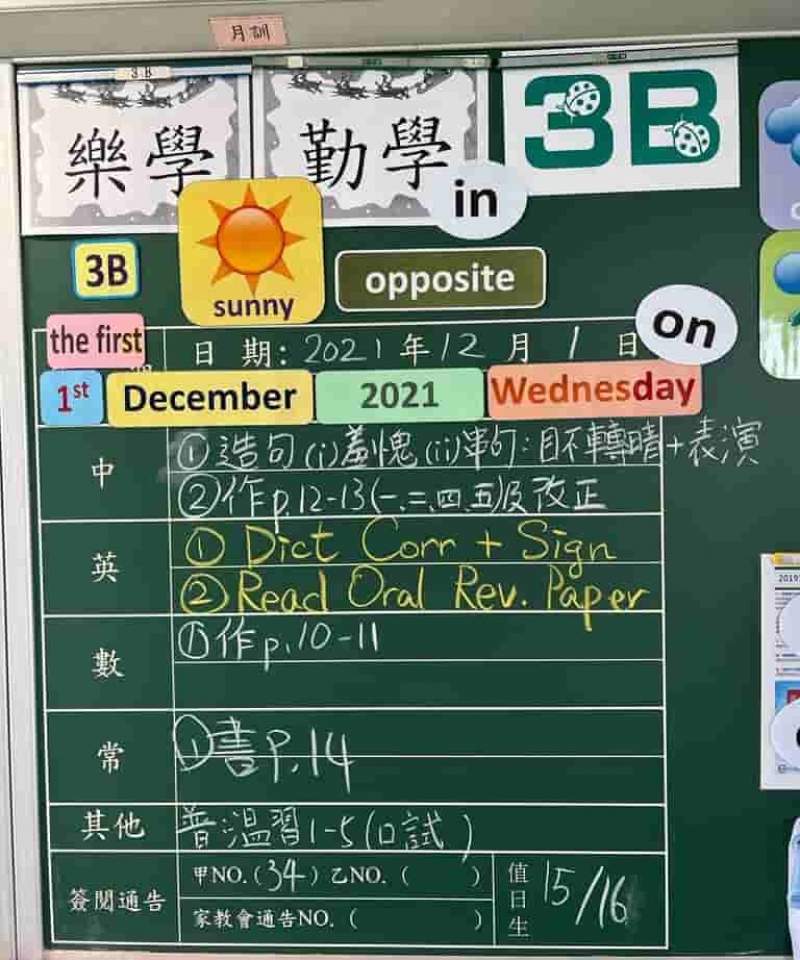 月訓
3B
樂學
勤學
3B
in
3B
sunny
opposite
the first
日 期: 2021 年 12 月 1 日
on
1st December 2021 Wednesday
中
①造句(i)羞愧(ii)串句:目不轉睛+表演
②作p.12-13(一.二.四.五)及改正
英
① Dict Corr + Sign
② Read Oral Rev. Paper
數
①作p.10-11
常
①書P.14
其他
普:溫習1-5(口試)
簽閱通告
甲NO.(34) 乙NO.( )
家教會通告NO.( )
值日生
15/16
2019